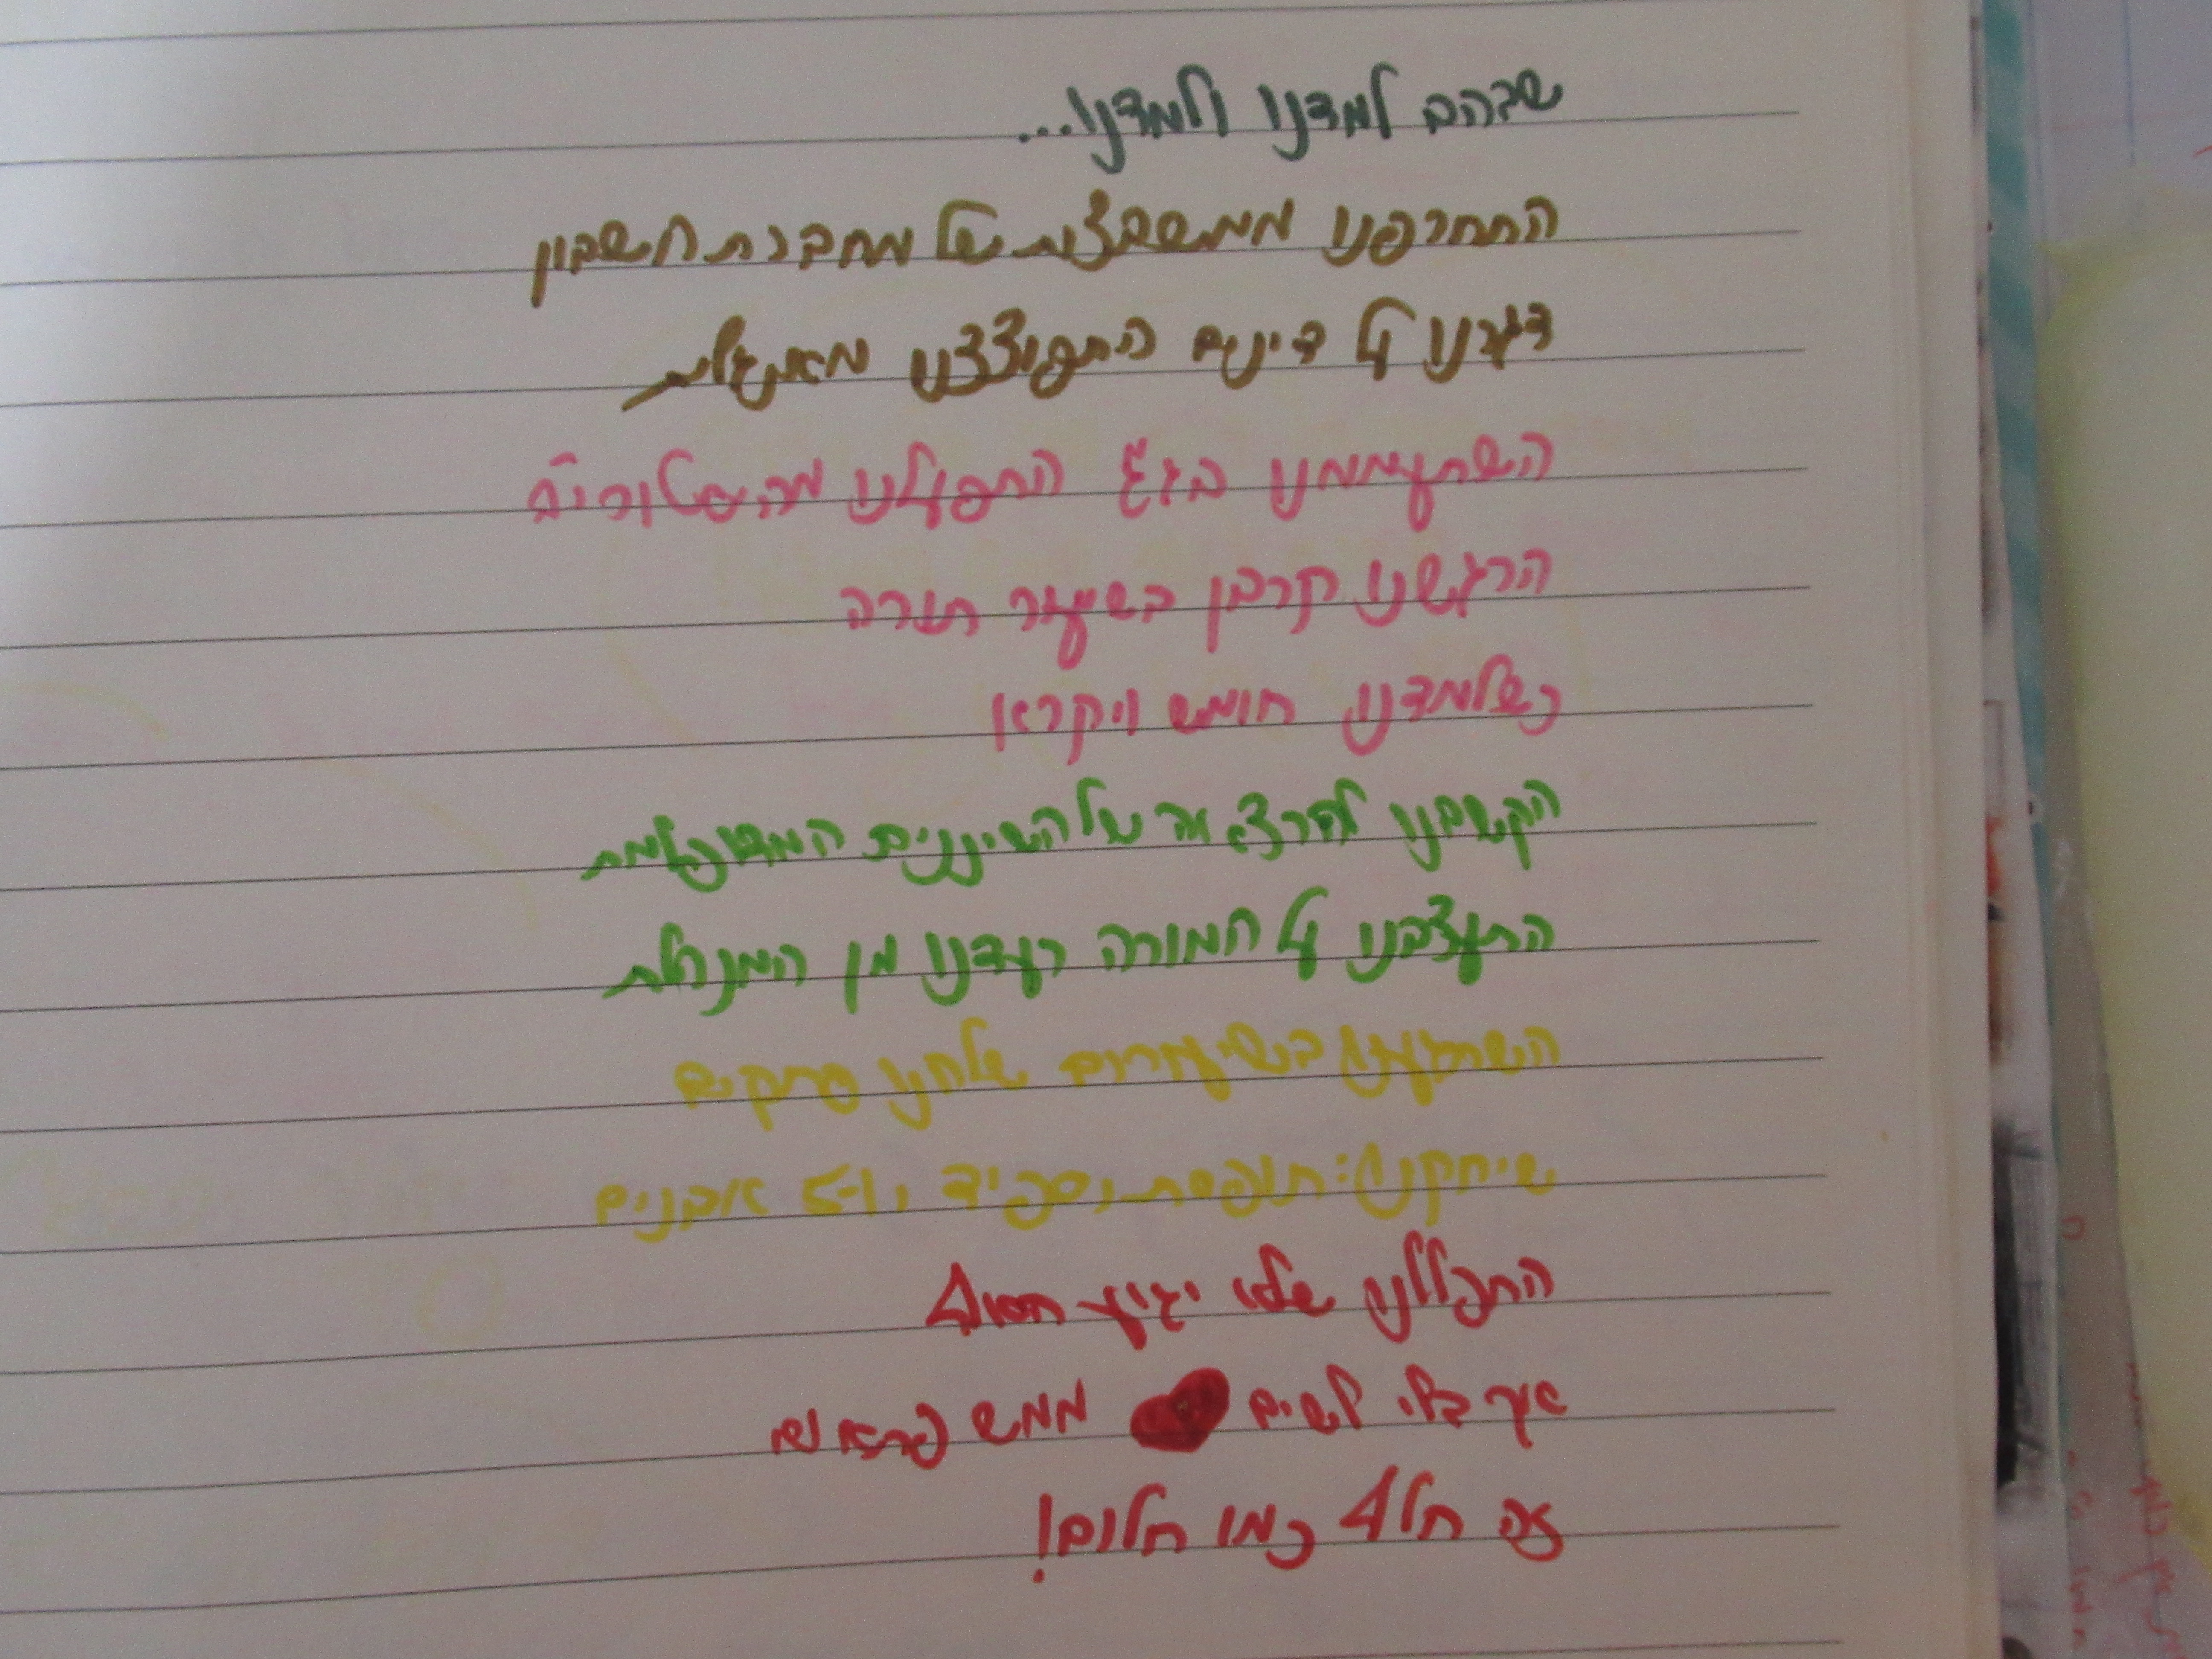 שבהם למדנו ולמדנו...
התחרפנו ממשבצות של מחברת חשבון
דגרנו על דינים התפוצצנו מאנגלית
השתעממנו בגגע התפעלנו מהסטוריה
הרגשנו קרבן בשיעור תורה
כשלמדנו חומש ויקרא
הקשבנו להרצאה של השיננים המשוכללת
התעצבנו על המורה רעדנו מן המנהלת
השתגענו בשיעורים שלחנו פתקים
שיחקנו: תופסת, ספיד, ו-5 אבנים
התפללנו שלא יגיע הסוף
איך בלי לשים ממש
זה חלף כמו חלום!